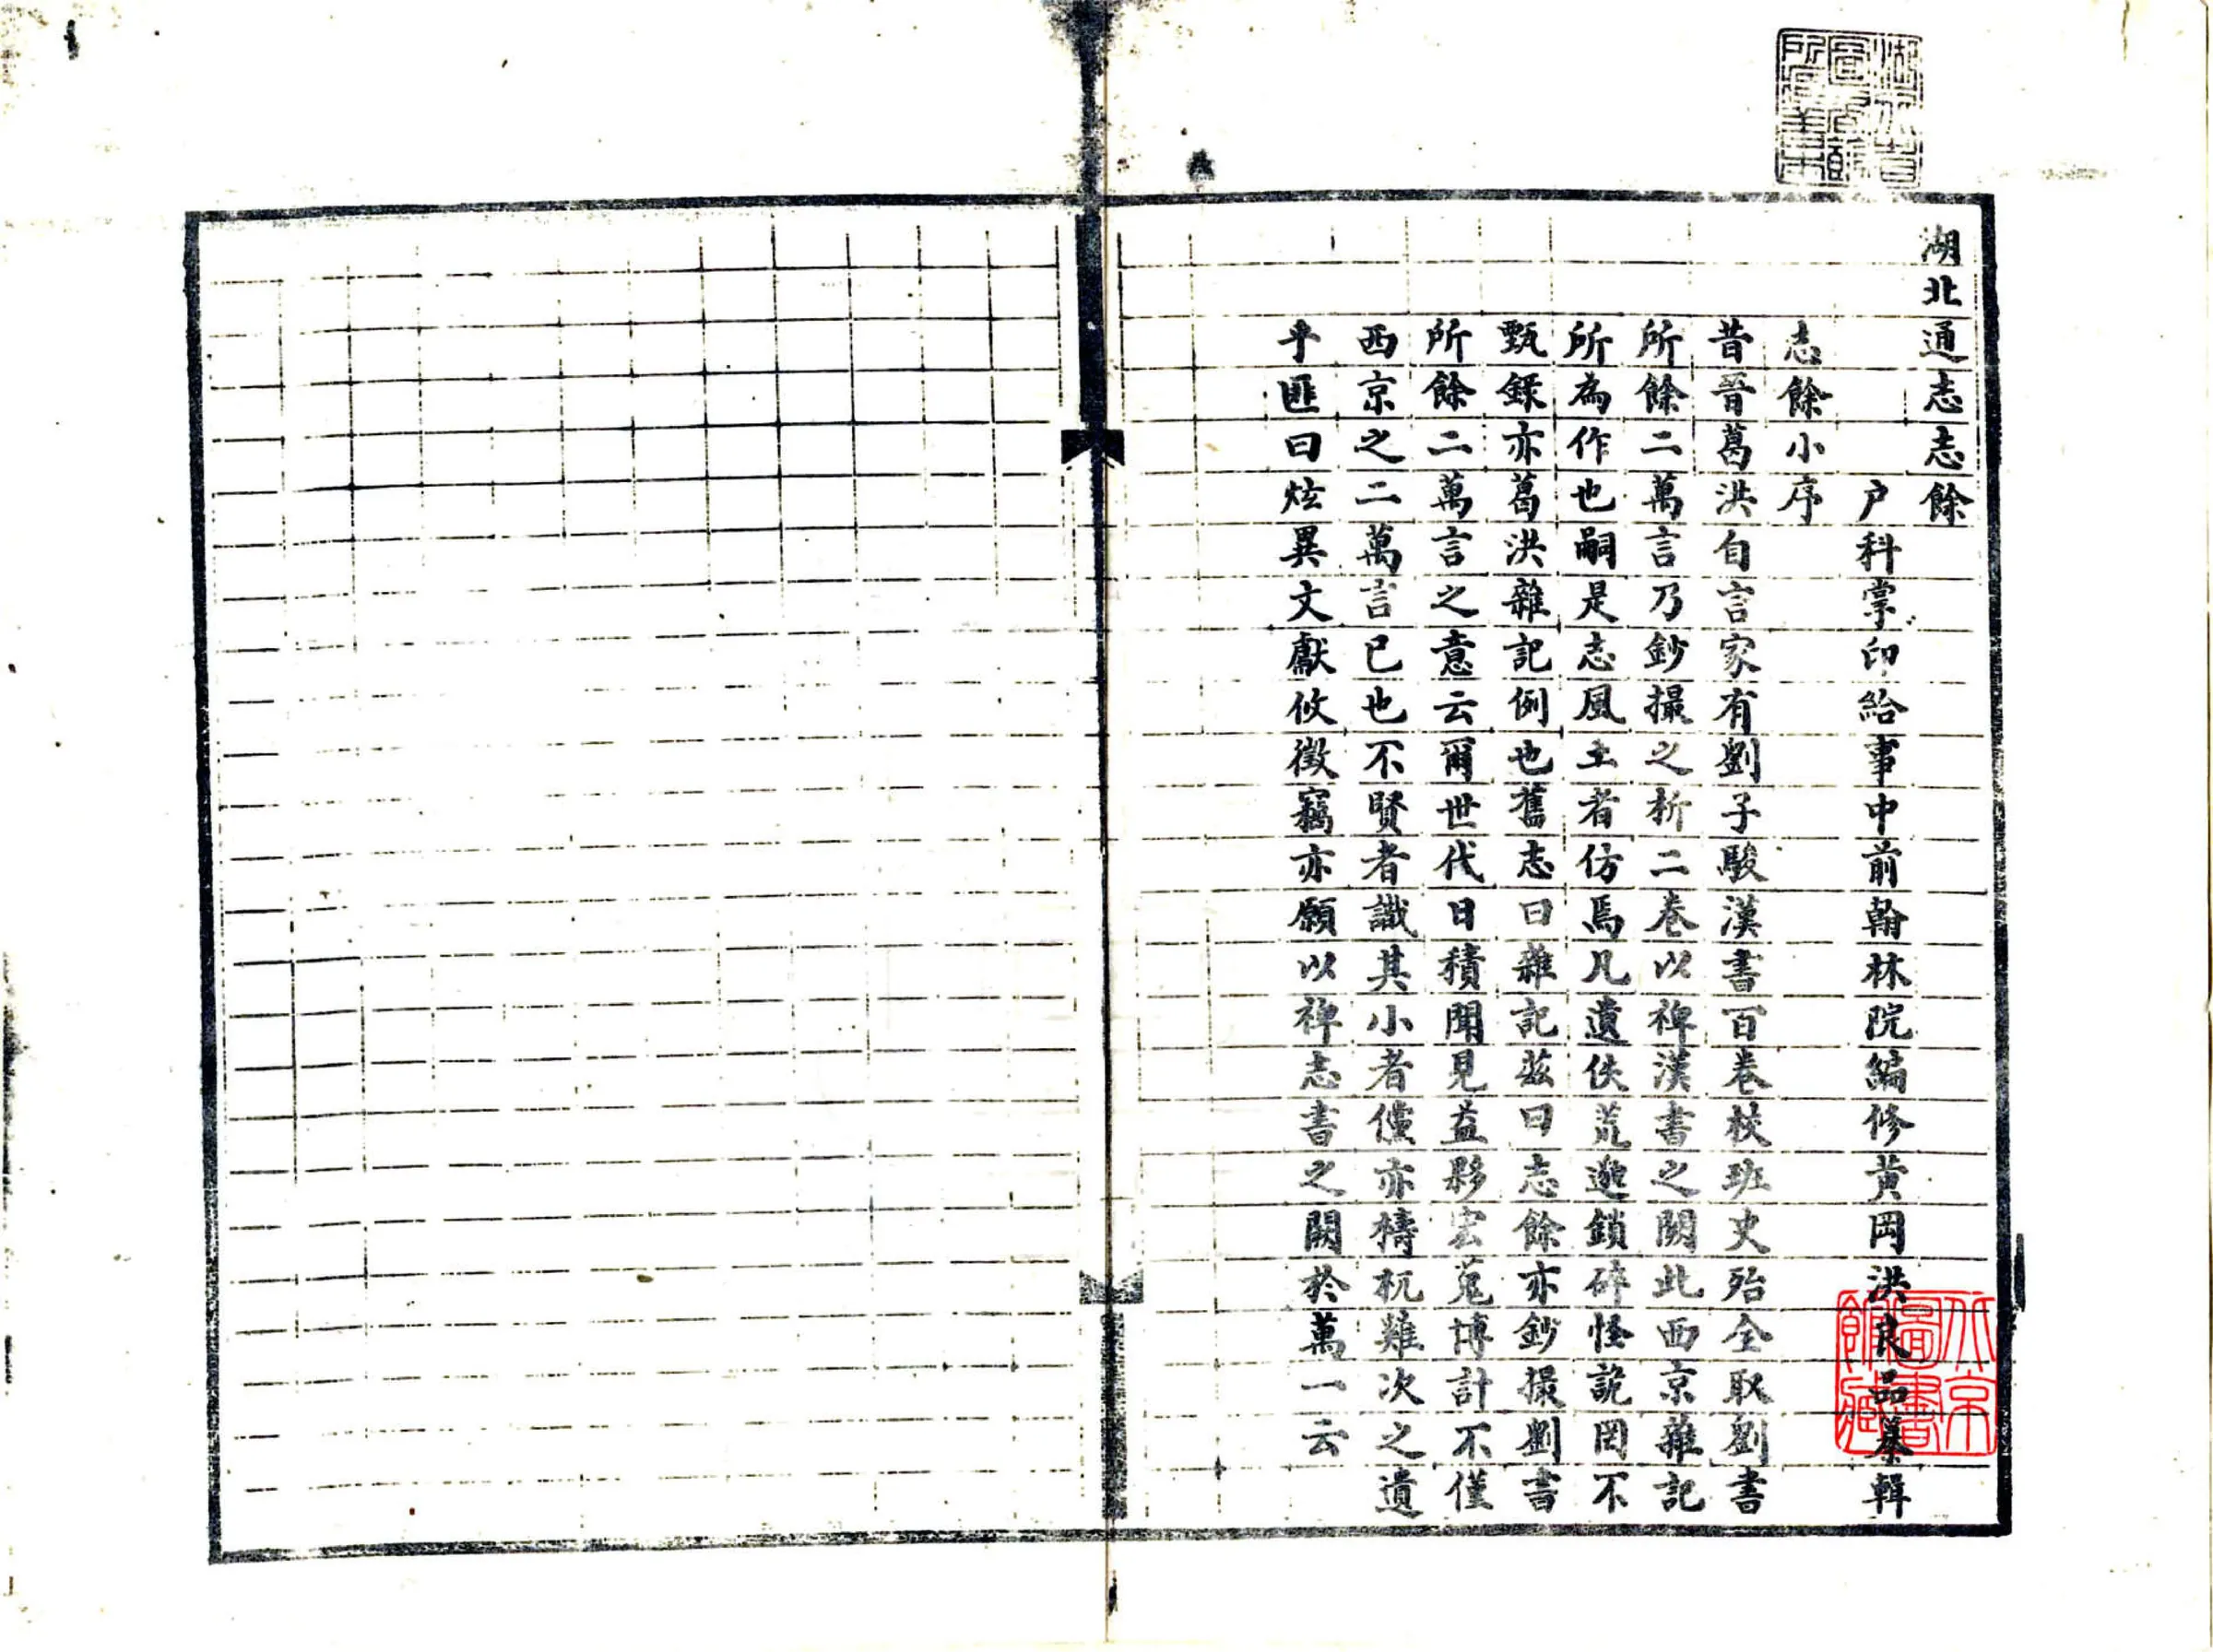 湖北通志志餘
户科掌印給事中前翰林院編修黃岡洪良品纂輯
志餘小序
昔晉葛洪自言家有劉子駿漢書百卷校班史殆全取劉書
所餘二萬言乃鈔撮之析二卷以裨漢書之闕此西京雜記
所為作也嗣是志風土者仿焉凡遺佚荒邈鎖碎怪詭罔不
甄録亦葛洪雜記例也舊志曰雜記茲曰志餘亦鈔撮劉書
所餘二萬言之意云爾世代日積聞見益夥宏蒐博計不僅
西京之二萬言已也不賢者識其小者儻亦檮杌雖次之遺
乎匪曰炫異文獻攸徵竊亦願以裨志書之闕於萬一云
湖北省
圖書館
所藏善本
北京
圖書
館藏